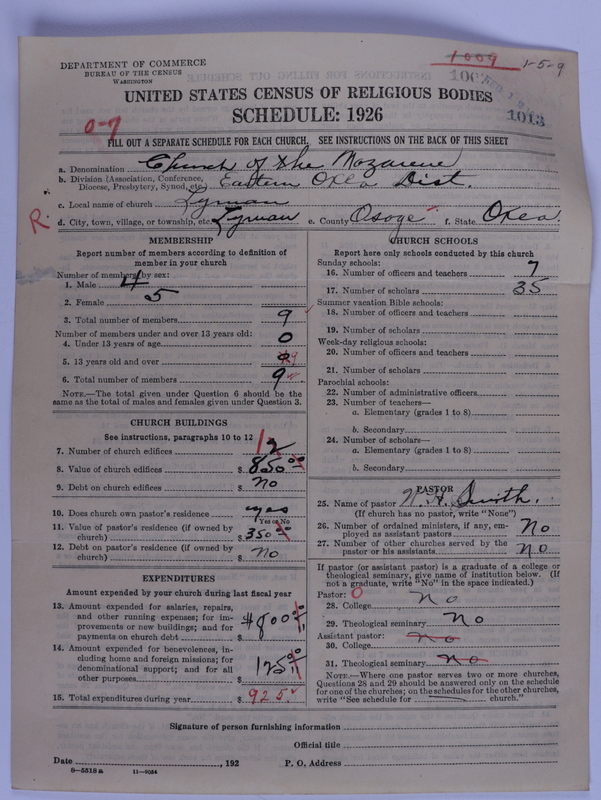 DEPARTMENT OF COMMERCE
BUREAU OF THE CENSUS
WASHINGTON
1009 1-5-9
1013
UNITED STATES CENSUS OF RELIGIOUS BODIES
SCHEDULE: 1926
0-7
FILL OUT A SEPARATE SCHEDULE FOR EACH CHURCH. SEE INSTRUCTIONS ON THE BACK OF THIS SHEET
a. Denomination Church of the Nazarene
b. Division (Association, Conference, Diocese, Presbytery, Synod, etc.) Eastern Okla Dist.
c. Local name of church Lyman
R. d. City, town, village, or township, etc. Lyman e. County Osage f. State Okla.
MEMBERSHIP
Report number of members according to definition of
member in your church
Number of members by sex:
1. Male 4
2. Female 5
3. Total number of members 9
Number of members under and over 13 years old:
4. Under 13 years of age 0
5. 13 years old and over 9
6. Total number of members 9
NOTE.—The total given under Question 6 should be
same as the total of males and females given under Question 3.
CHURCH BUILDINGS
See instructions, paragraphs 10 to 12
7. Number of church edifices 1 2
8. Value of church edifices $ 850.00
9. Debt on church edifices $ no
10. Does church own pastor's residence yes
Yes or No
11. Value of pastor's residence (if owned by
church) $ 350.00
12. Debt on pastor's residence (if owned by
church) $ no
EXPENDITURES
Amount expended by your church during last fiscal year
13. Amount expended for salaries, repairs,
and other running expenses; for im-
provements or new buildings; and for
payments on church debt $ $800.00
14. Amount expended for benevolences, in-
cluding home and foreign missions; for
denominational support; and for all
other purposes $ 125.00
15. Total expenditures during year $ 925.
CHURCH SCHOOLS
Report here only schools conducted by this church
Sunday schools:
16. Number of officers and teachers 7
17. Number of scholars 35
Summer vacation Bible schools:
18. Number of officers and teachers
19. Number of scholars
Week-day religious schools:
20. Number of officers and teachers
21. Number of scholars
Parochial schools:
22. Number of administrative officers
23. Number of teachers—
a. Elementary (grades 1 to 8)
b. Secondary
24. Number of scholars—
a. Elementary (grades 1 to 8)
b. Secondary
PASTOR
25. Name of pastor Smith.
(If church has no pastor, write "None")
26. Number of ordained ministers, if any, em-
ployed as assistant pastors No
27. Number of other churches served by the
pastor or his assistants no
If pastor (or assistant pastor) is a graduate of a college or
theological seminary, give name of institution below. (If
not a graduate, write "No" in the space indicated.)
Pastor: 0
28. College no
29. Theological seminary No
Assistant pastor:
30. College no
31. Theological seminary no
NOTE.—Where one pastor serves two or more churches,
Questions 28 and 29 should be answered only on the schedule
for one of the churches; on the schedules for the other churches,
write "See schedule for church."
Signature of person furnishing information
Official title
Date , 192 P. O. Address
8—5518a 11—9034